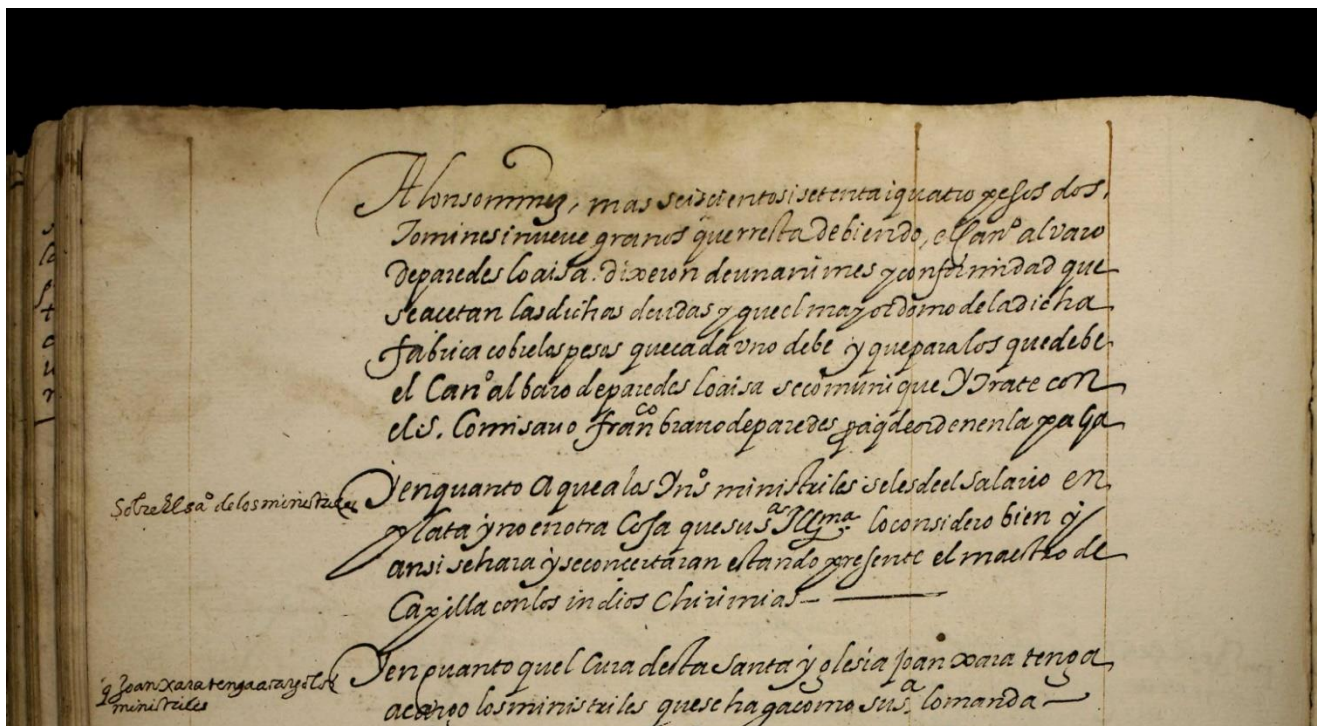 Alonso mrnz, mas seiscientos i setenta i quatro pesos dos,
Tomines i nueve granos que rresta debiendo, el Canº alvaro
de paredes loaisa. dixeron de unanimes y conformidad que
se acetan las dichas deudas y que el mayordomo de la dicha
fabrica cobre los pesos que cada uno debe y que para los que debe
el Canº albaro de paredes loaisa se comunique y Trate con
el S. Comisario franco bravo de paredes de orden en la paga
Sobre El saº de los ministriles
Y en quanto A que a los Ynºs ministriles se les de el Salario en
plata y no en otra Cosa que su sª Illma lo considero bien y
ansi se hara y se concertaran estando presente el maestro de
Capilla con los indios Chirimias
q Joan xara tenga a cargo los
ministriles
Y en quanto quel Cura desta Santa yglesia Joan xara tenga
a cargo los ministriles que se haga como su sª lo manda